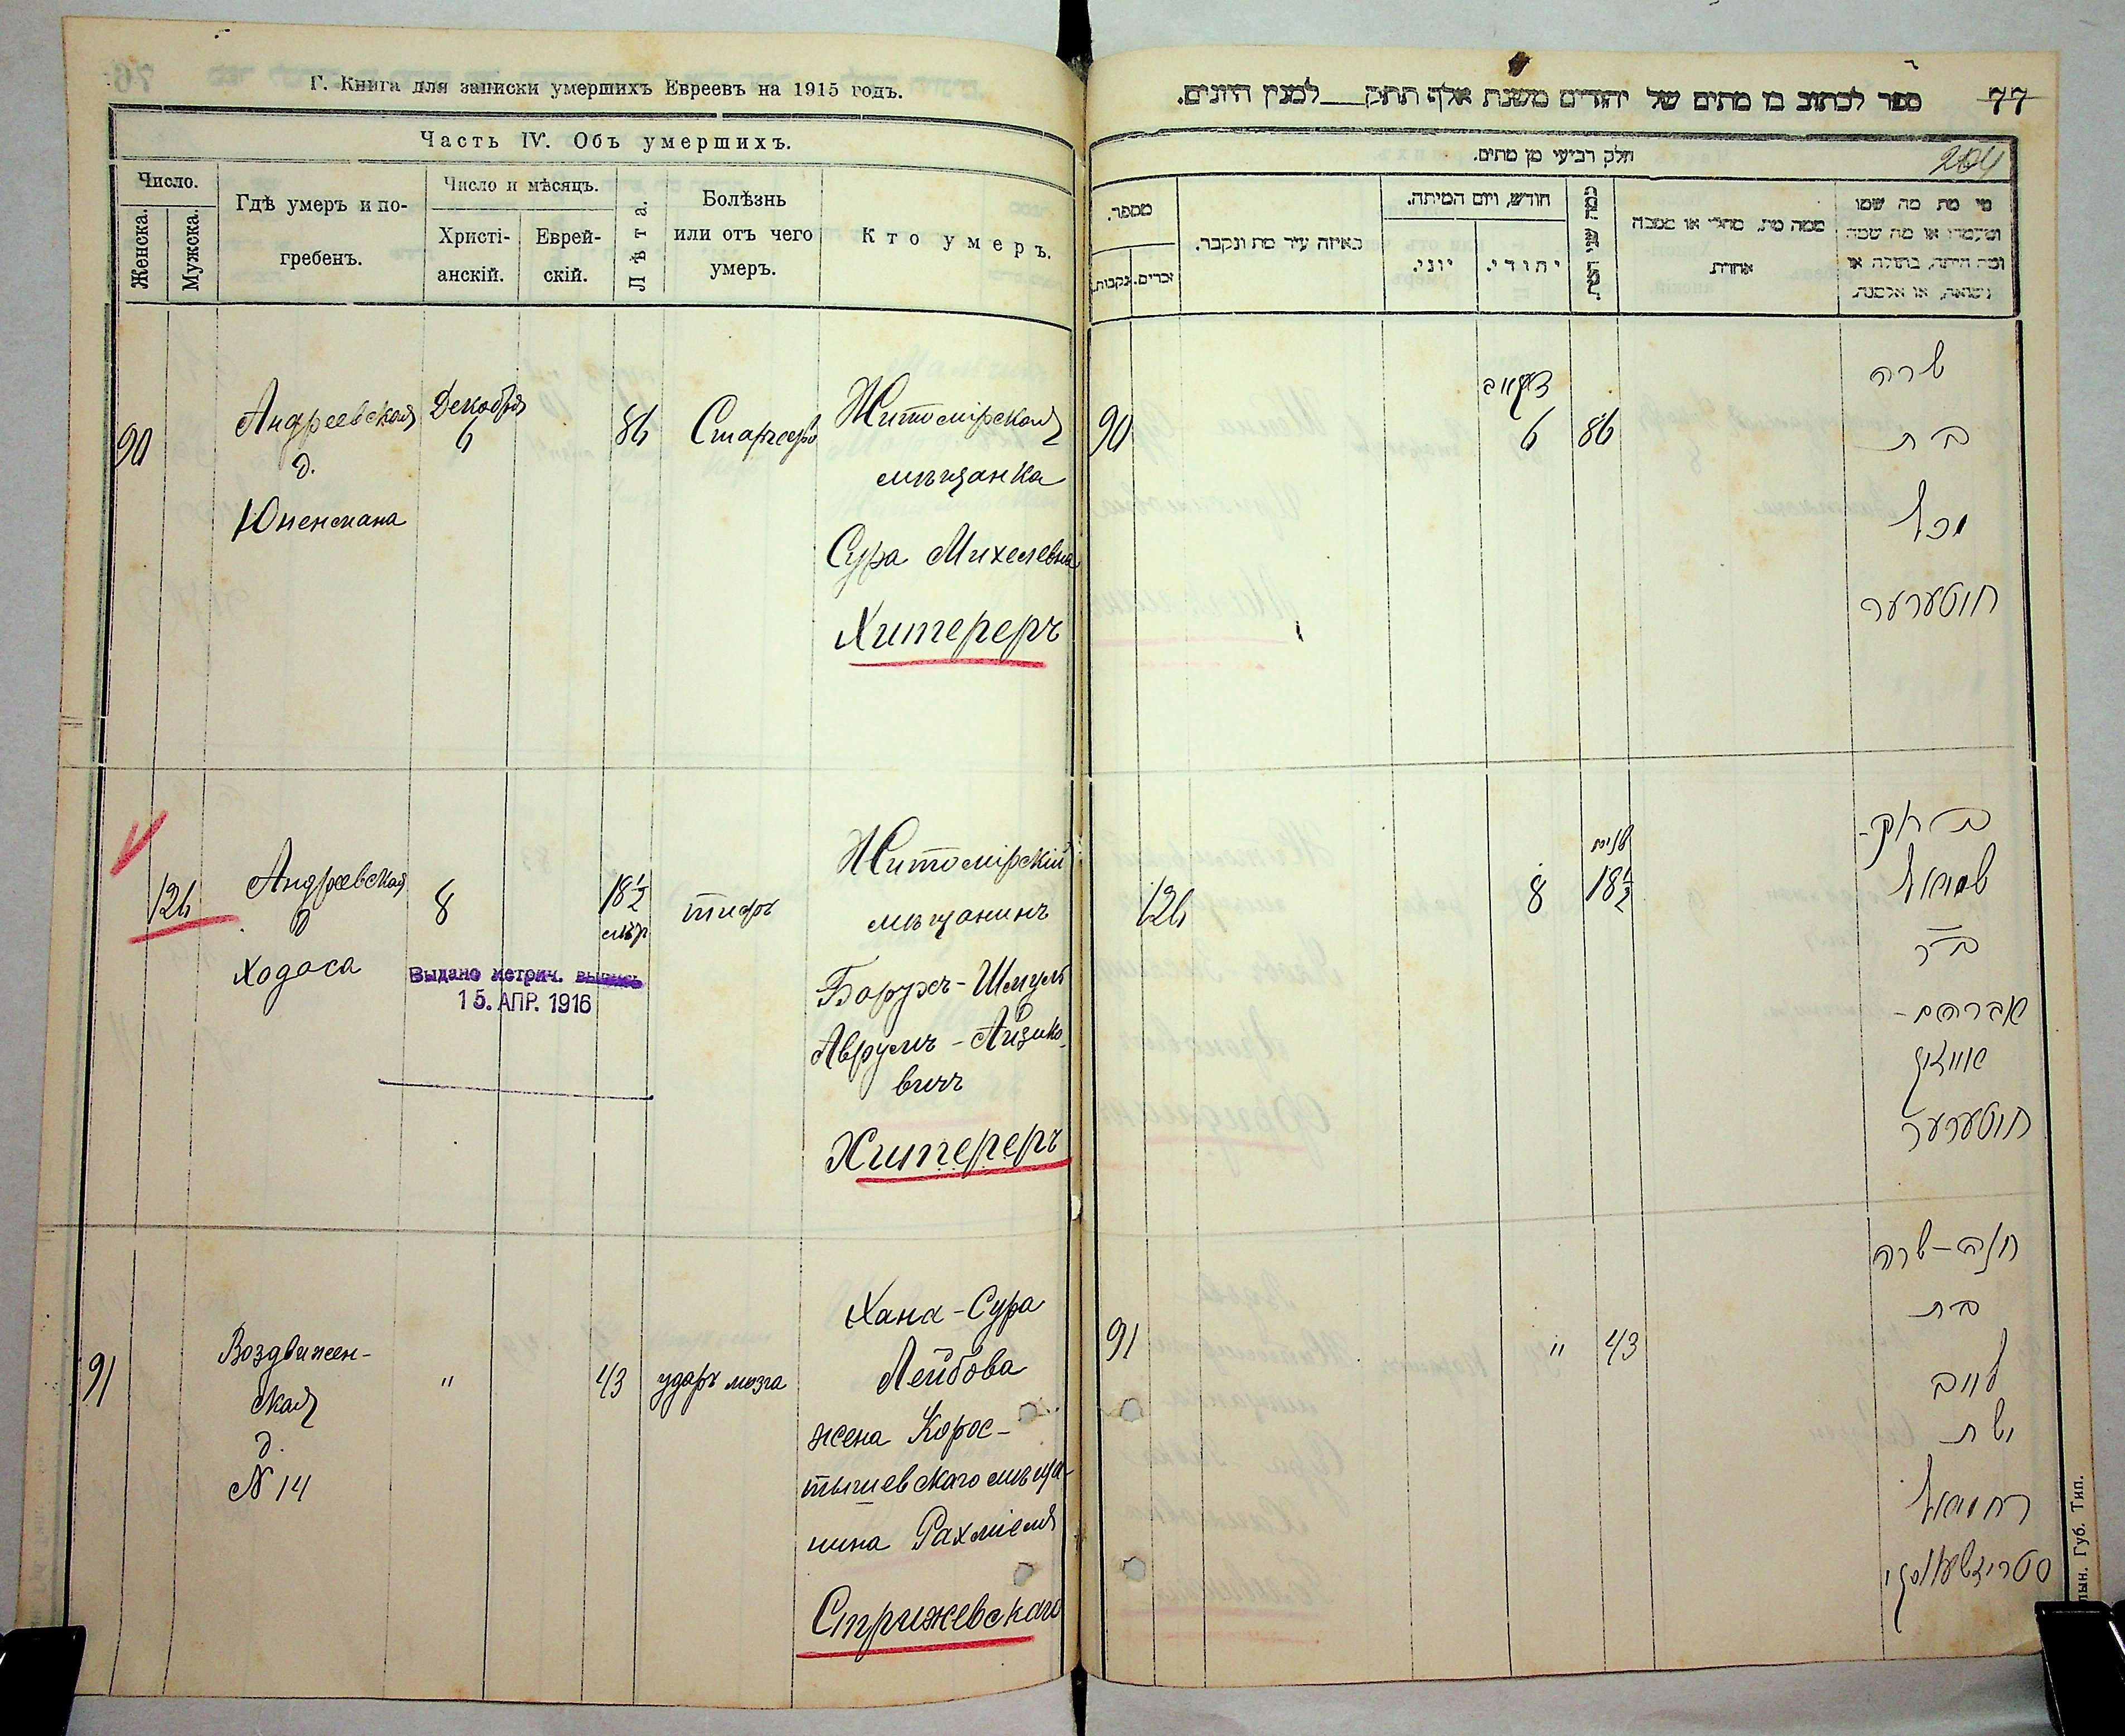 Г. Книга для записки умершихъ Евреевъ на 1915 годъ.
Часть IV. Объ умершихъ.
Число.
Женска.
Мужска.
Гдѣ умеръ и по-
гребенъ.
Число и мѣсяцъ.
Христі-
анскій.
Еврей-
скій.
Лѣта.
Болѣзнь
или отъ чего
умеръ.
Кто умеръ.
90
Андреевская
д.
Юкенмана
Декабря
6
86
Старческ.
Житомірская
мѣщанка
Сура Михелевна
Хитереръ
126
Андреевская
д
Ходоса
8
18½
мѣр
тифъ
Житомірскій
мѣщанинъ
Борухъ-Шмуль
Аврумъ-Айзико-
вичъ
Хитереръ
Выдано метрич. выпись
15. АПР. 1916
91
Воздвижен-
ская
д.
N 14
"
43
ударъ мозга
Хана-Сура
Лейбова
жена Корос-
тышевскаго мѣща-
нина Рахміеля
Стрижевскаго
ספר לכתוב בו מתים של יהודים משנת אלף תתק למנין היונים.
77
חלק רביעי מן מתים.
204
מספר.
נקבות.
זכרים.
באיזה עיר מת ונקבר.
חודש, ויום המיתה.
יוני.
יהודי.
ממה מת, מחלי או מסבה
אחרת
מי מת מה שמו
ומעמדו או מה שמה
ומה היתה, בתולה או
נשואה, או אלמנת.
90
6
86
שרה
בת
יכל
חיטערער
126
8
18½
ברוך-
שמואל
ב״ר
אברהם-
אייזיק
חיטערער
91
"
43
חנה-שרה
בת
לייב
אשת
רחמיאל
סטריזשעווסקי
Губ. Тип.